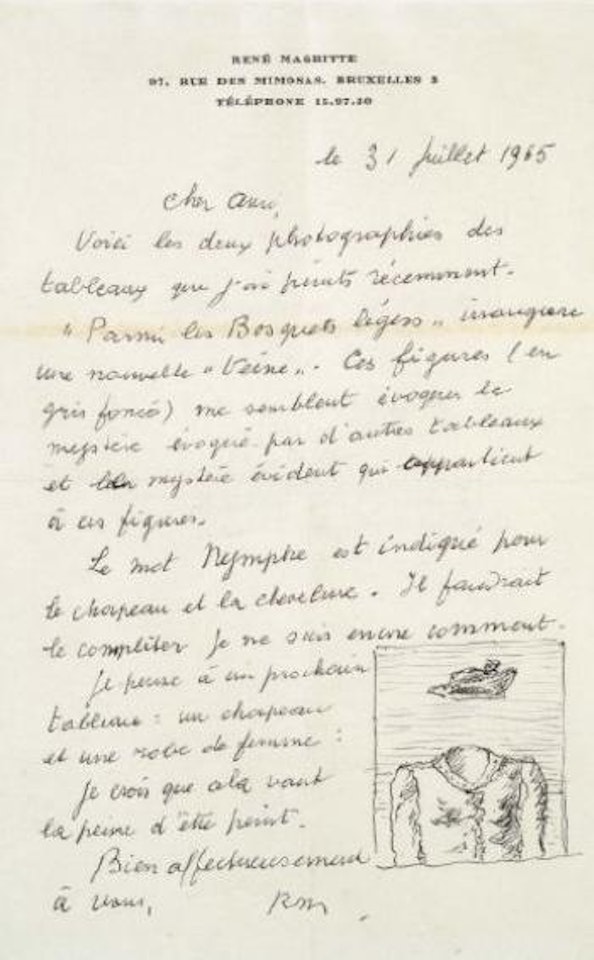 RENÉ MAGRITTE
97, RUE DES MIMOSAS. BRUXELLES 3
TÉLÉPHONE 15.97.30
le 31 Juillet 1965
Cher Ami,
Voici les deux photographies des
tableaux que j'ai peints récemment.
"Parmi les Bosquets légers" inaugure
une nouvelle "Veine". Ces figures (en
gris foncé) me semblent évoquer le
mystère évoqué par d'autres tableaux
et le mystère évident qui appartient
à ces figures.
Le mot Nymphe est indiqué pour
le chapeau et la chevelure. Il faudrait
le compléter je ne sais encore comment.
Je pense à un prochain
tableau : un chapeau
et une robe de femme :
Je crois que cela vaut
la peine d'être peint.
Bien affectueusement
à vous,
RM